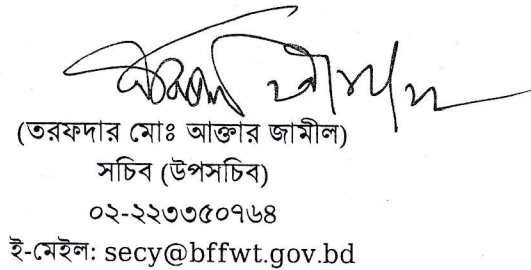 (তরফদার মোঃ আক্তার জামীল)
সচিব (উপসচিব)
০২-২২৩৩৫০৭৬৪
ই-মেইল: secy@bffwt.gov.bd